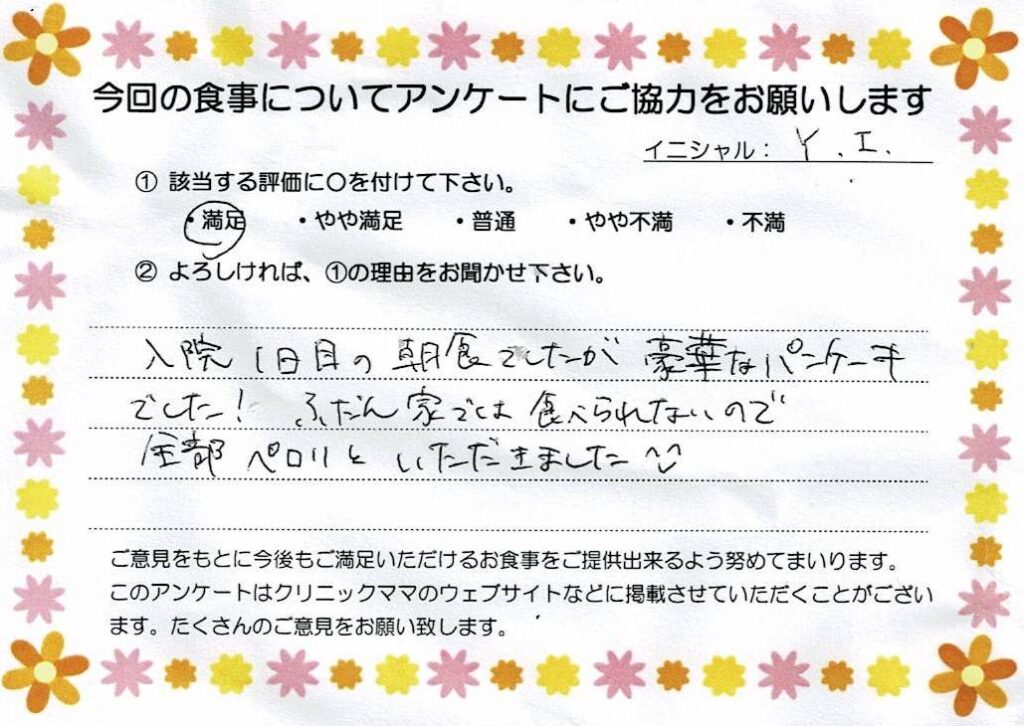 今回の食事についてアンケートにご協力をお願いします
イニシャル： Y. I.
① 該当する評価に〇を付けて下さい。
・満足 ・やや満足 ・普通 ・やや不満 ・不満
② よろしければ、①の理由をお聞かせ下さい。
入院1日目の朝食でしたが豪華なパンケーキ
でした！ ふだん家では食べられないので
全部ペロリといただきました
ご意見をもとに今後もご満足いただけるお食事をご提供出来るよう努めてまいります。
このアンケートはクリニックママのウェブサイトなどに掲載させていただくことがござい
ます。たくさんのご意見をお願い致します。